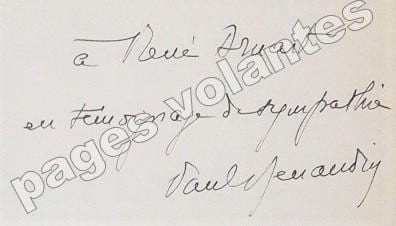 à René
en témoignage de sympathie
Paul
pages volantes